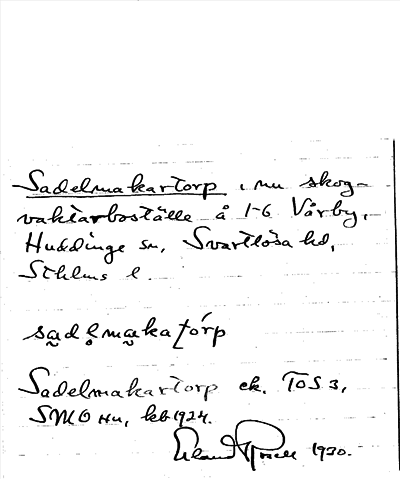 Sadelmakartorp, nu skog-
vaktarboställe å 1-6 Vårby,
Huddinge sn, Svartlösa hd,
Sthlms l.
sa̯de̥lma̯katórp
Sadelmakartorp ek. TOS 3,
SMO Hu, kb 1924.
1930.